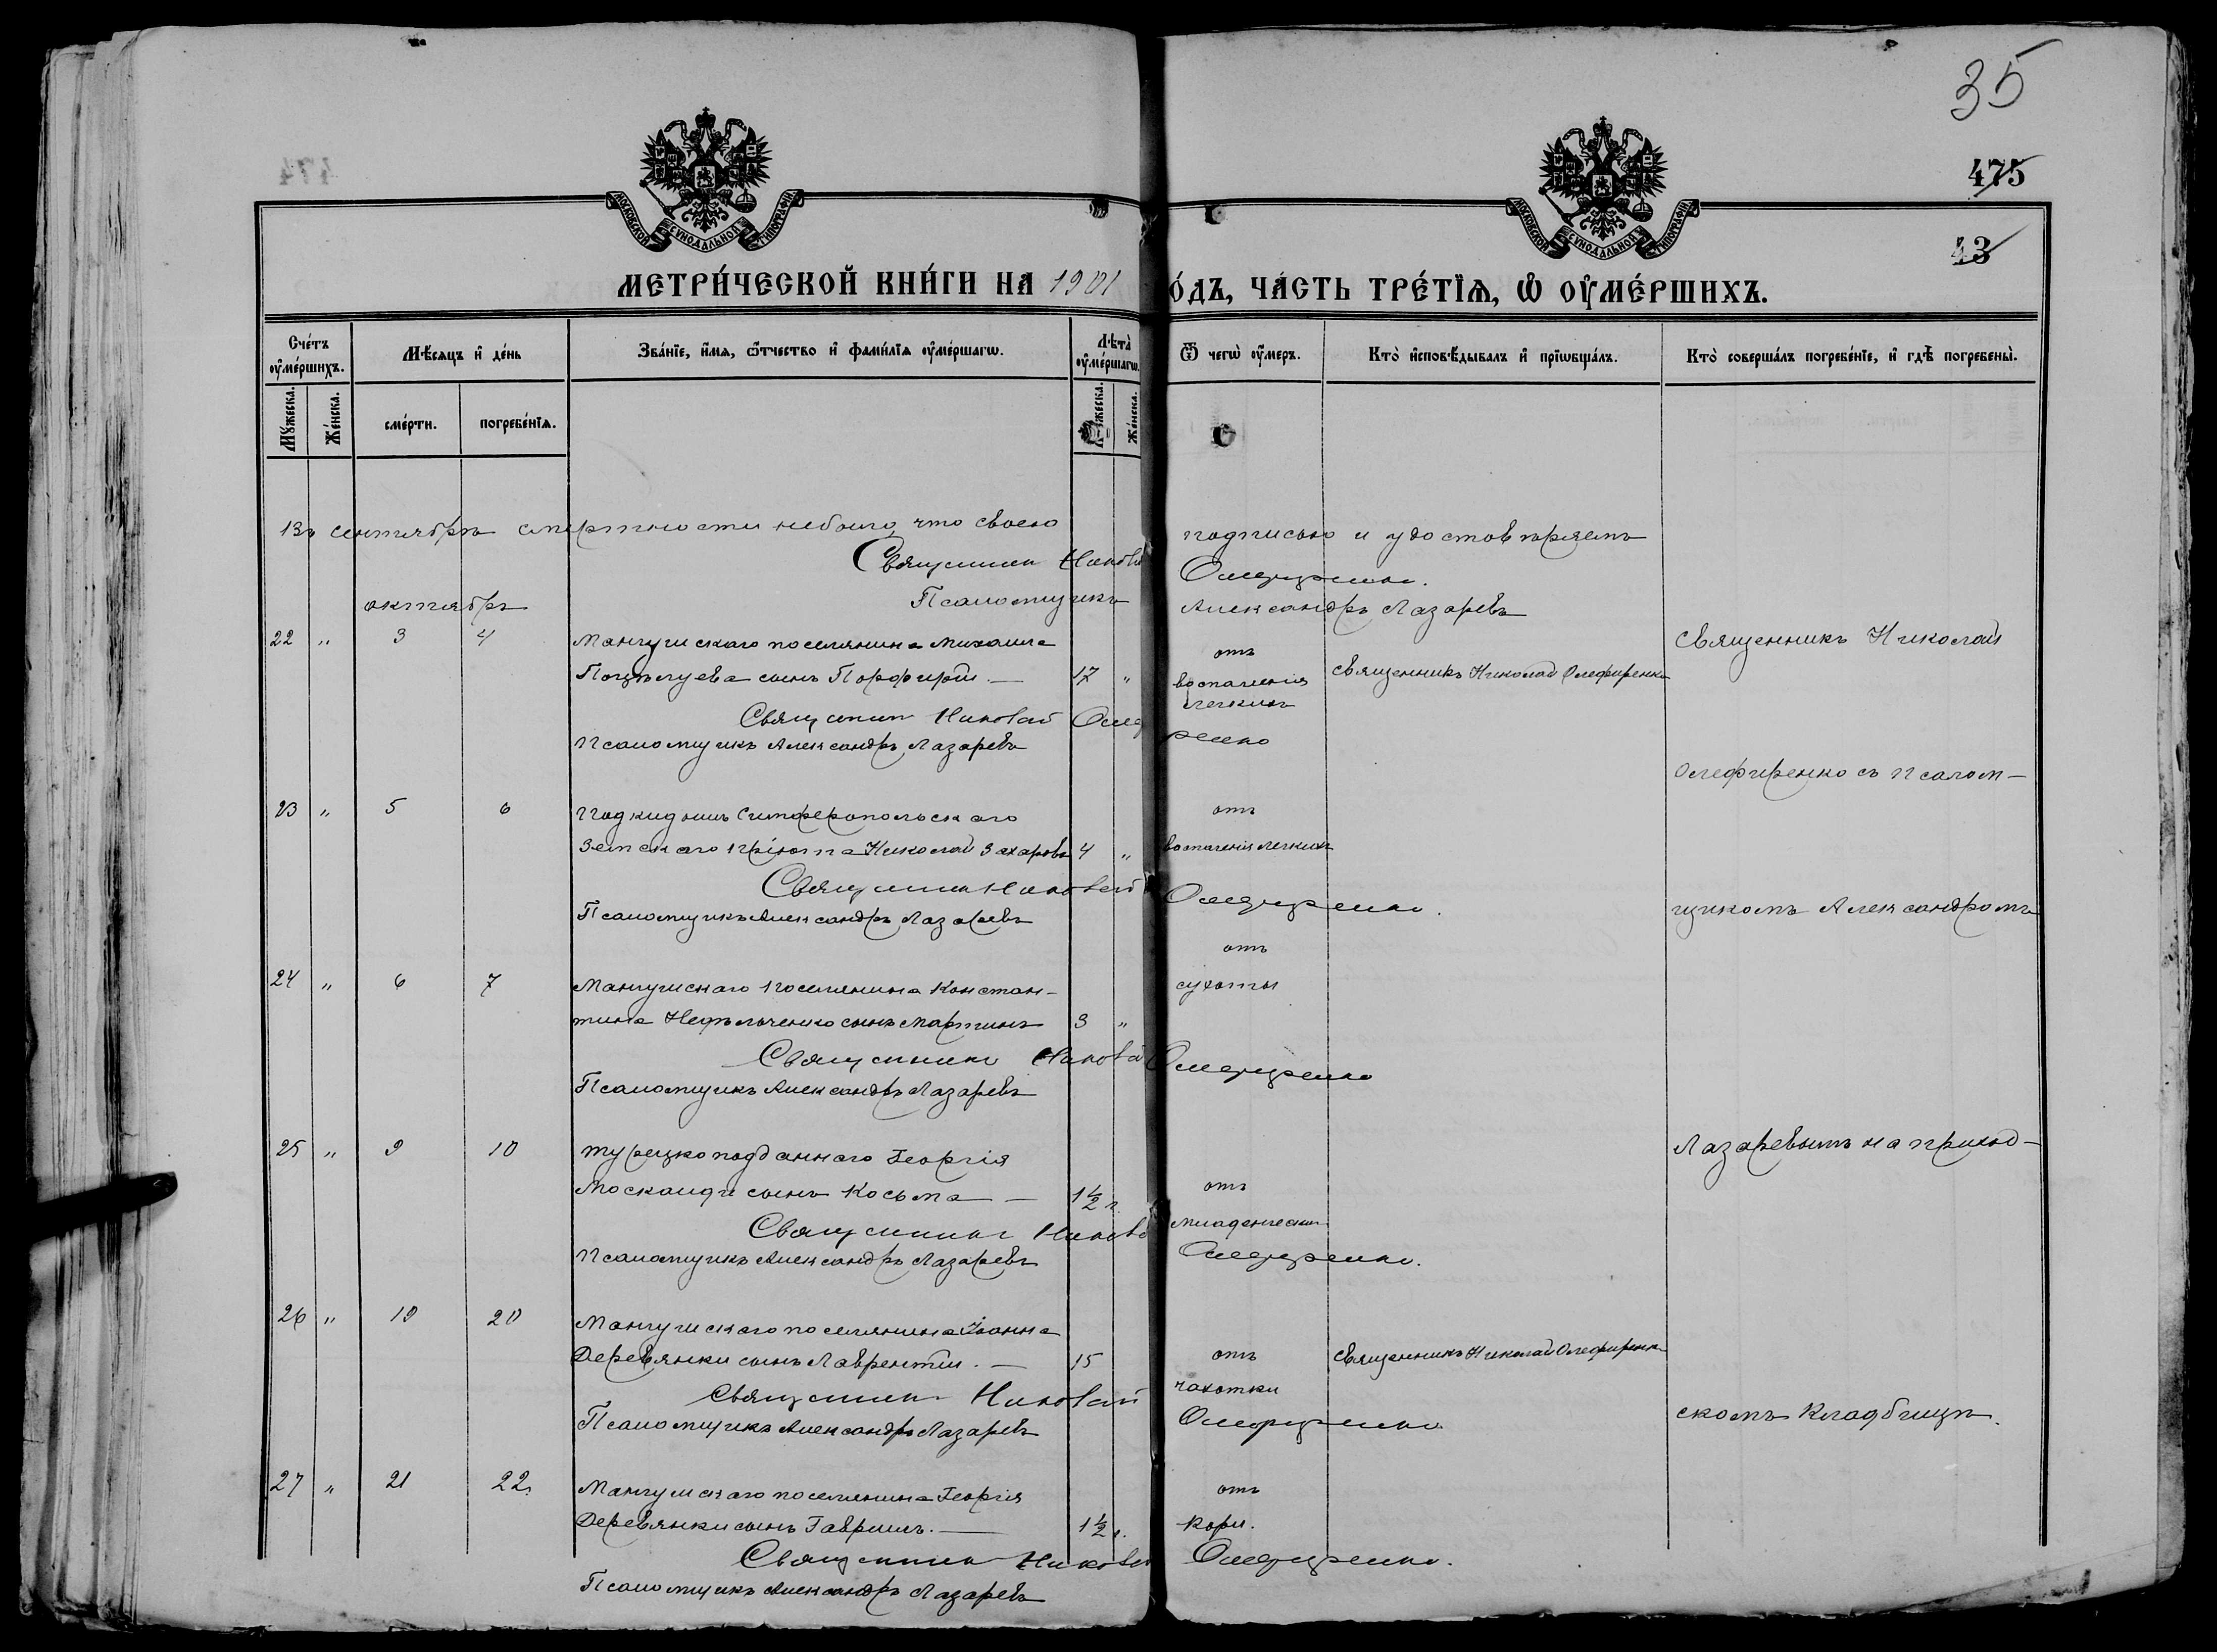 35
475
43
МОСКОВСКОЙ СѴНОДАЛЬНОЙ ТИПОГРАФІИ
МОСКОВСКОЙ СѴНОДАЛЬНОЙ ТИПОГРАФІИ
МЕТРИ́ЧЕСКОЙ КНИ́ГИ НА 1901 О́ДЪ, ЧА́СТЬ ТРЕ́ТЇѦ, Ѿ ОУ҆МЕ́РШИХЪ.
Сче́тъ оу҆ме́ршихъ.
Мꙋ́жеска.
Же́нска.
Мѣ́сѧцъ и҆ де́нь
сме́рти.
погребе́нїѧ.
Зва́нїе, и҆́мѧ, ѻ҆́тчество и҆ фами́лїѧ оу҆ме́ршагѡ.
Лѣ́та оу҆ме́ршагѡ.
Мꙋ́жеска.
Же́нска.
Ѿ чегѡ̀ оу҆́меръ.
Кто̀ и҆сповѣ́дывалъ и҆ прїѡбща́лъ.
Кто̀ соверша́лъ погребе́нїе, и҆ гдѣ̀ погребены̀.
Въ сентябрѣ смертности небыло, что своею подписью и удостовѣряемъ
Священникъ Николай Олефиренко.
октябрь Псаломщикъ Александръ Лазаревъ
22 " 3 4 Мангушскаго поселянина Михаила
Поцѣлуева сынъ Порфирій. — 17 "
отъ
воспаленія
легкихъ
Священникъ Николай Олефиренко
Священникъ Николай
Священникъ Николай Олефиренко
Псаломщикъ Александръ Лазаревъ
Олефиренко съ псалом-
23 " 5 6 Подкидышъ Симферопольскаго
Земскаго пріюта Николай Захаровъ 4 "
отъ
воспаленія легкихъ
Священникъ Николай Олефиренко.
Псаломщикъ Александръ Лазаревъ
щикомъ Александромъ
24 " 6 7 Мангушскаго поселянина Констан-
тина Нефѣльченко сынъ Мартинъ 3 "
отъ
сухоты
Священникъ Николай Олефиренко
Псаломщикъ Александръ Лазаревъ
25 " 9 10 турецкоподданнаго Георгія
сынъ Косьма — 1½ г.
отъ
младенческой
Священникъ Николай Олефиренко.
Псаломщикъ Александръ Лазаревъ
Лазаревымъ на приход-
26 " 19 20 Мангушскаго поселянина Іоанна
Деревянки сынъ Лаврентій. — 15
отъ
чахотки
Священникъ Николай Олефиренко
Священникъ Николай Олефиренко
Псаломщикъ Александръ Лазаревъ
скомъ кладбищѣ.
27 " 21 22 Мангушскаго поселянина Георгія
Деревянки сынъ Гавріилъ. — 1½ г.
отъ
кори.
Священникъ Николай Олефиренко.
Псаломщикъ Александръ Лазаревъ